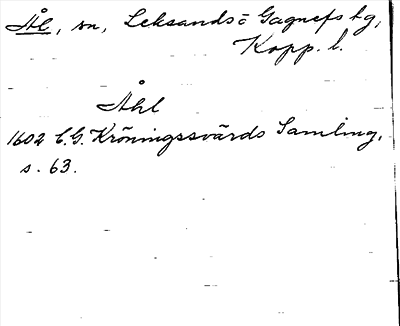 Ål, sn, Leksands o Gagnefs tg,
Kopp. l.
Åhl
1602 C.G. Kröningssvärds Samling,
s. 63.